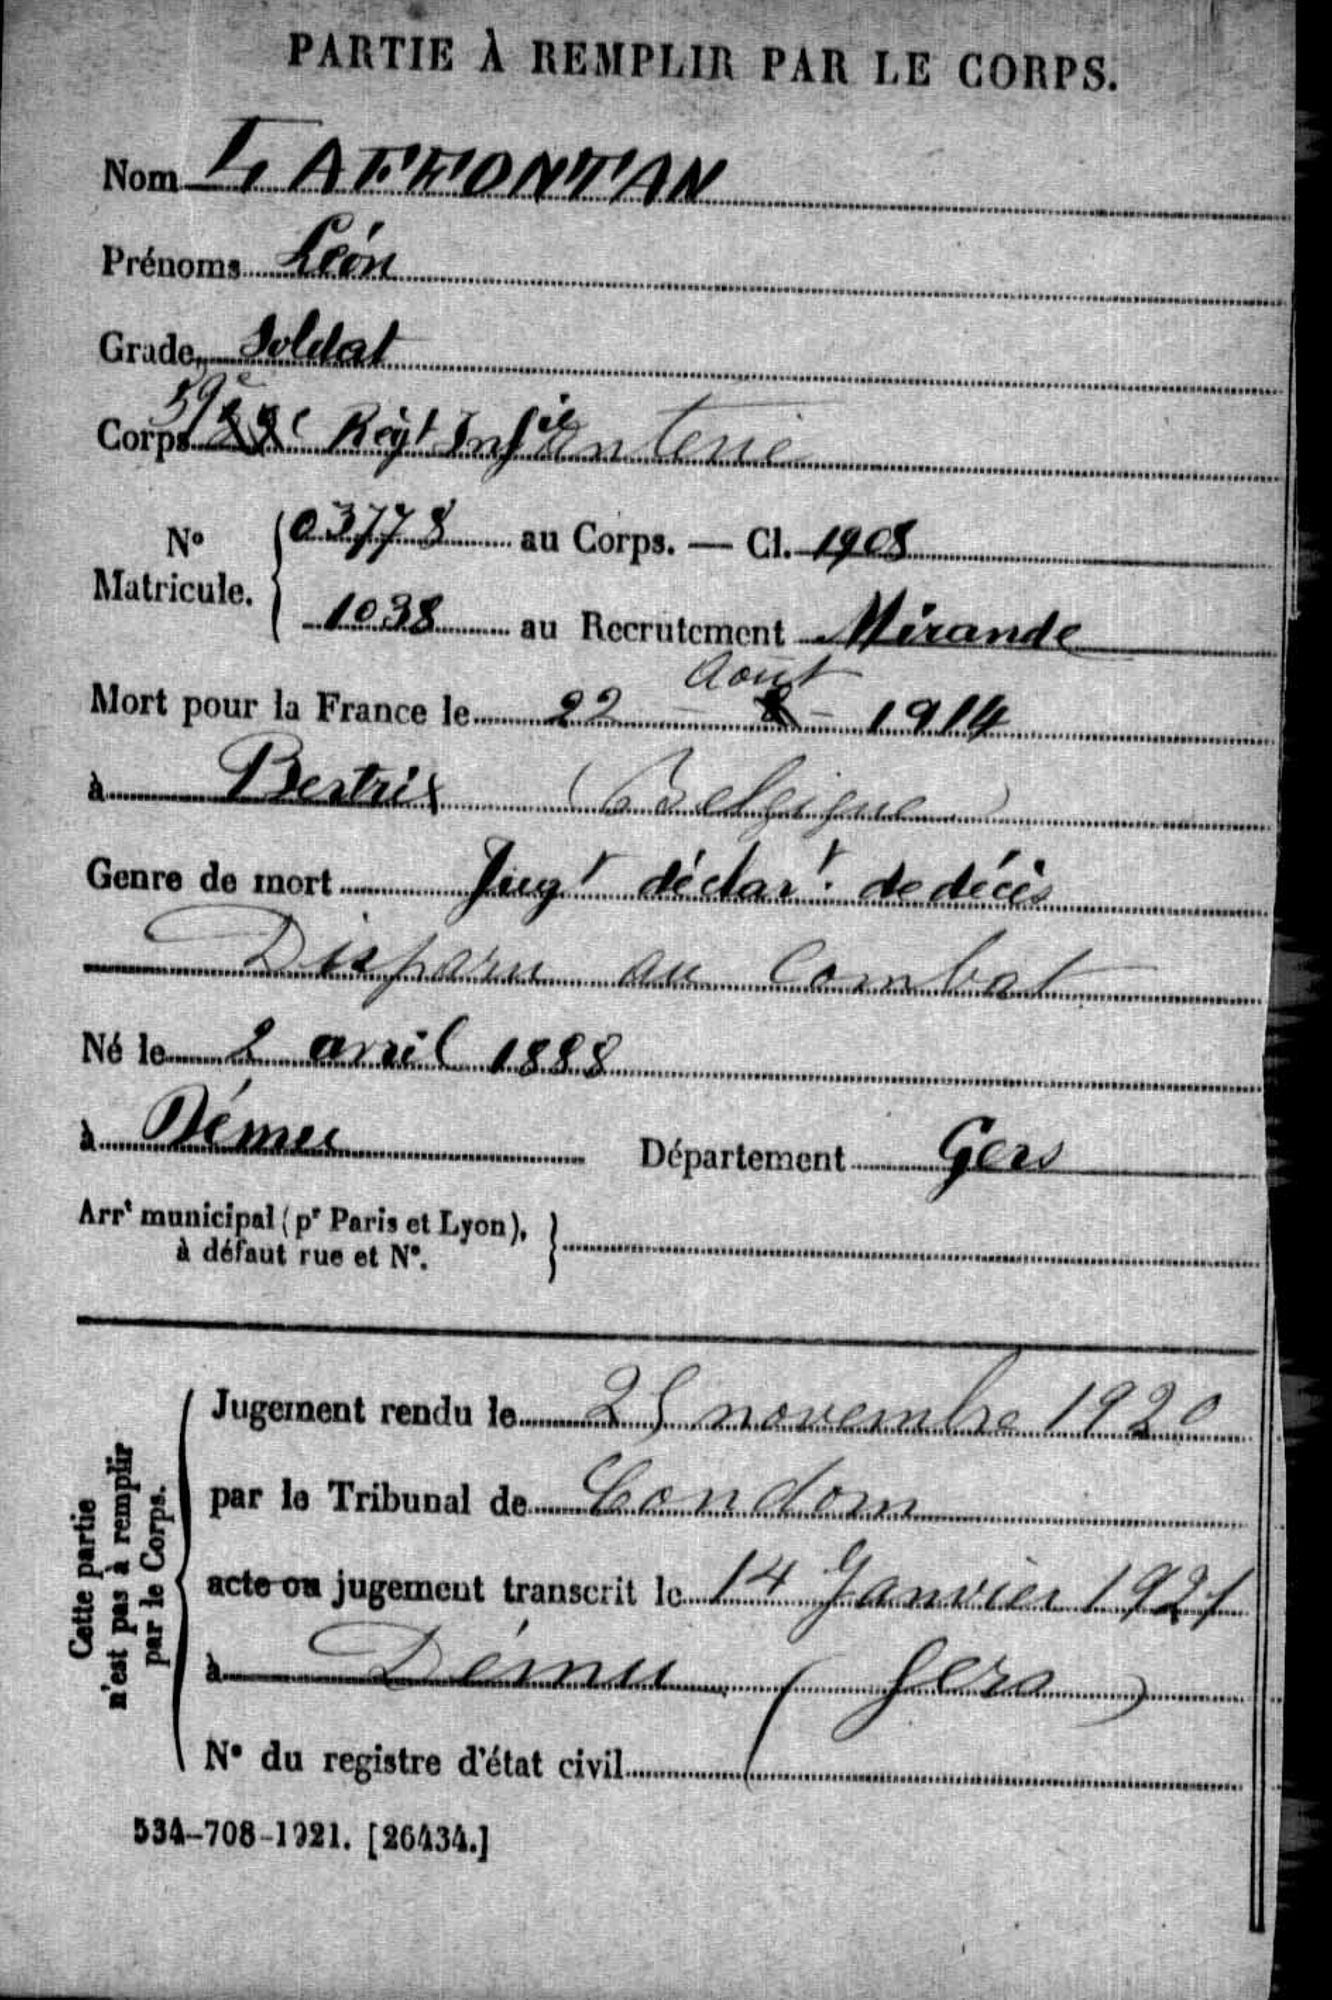 PARTIE À REMPLIR PAR LE CORPS.
Nom LAFFONTAN
Prénoms Léon
Grade Soldat
59e
Corps Régt Infie anterie
No Matricule. 03778 au Corps. — Cl. 1908
1038 au Recrutement Mirande
Août
Mort pour la France le 22 - 8 - 1914
à Bertrix (Belgique)
Genre de mort Jugt déclart. de décès
Disparu au combat
Né le 2 avril 1888
à Dému Département Gers
Arrt municipal (pr Paris et Lyon),
à défaut rue et No.
Cette partie
n'est pas à remplir
par le Corps.
Jugement rendu le 25 novembre 1920
par le Tribunal de Condom
acte ou jugement transcrit le 14 Janvier 1921
à Dému (Gers)
No du registre d'état civil
534-708-1921. [26434.]